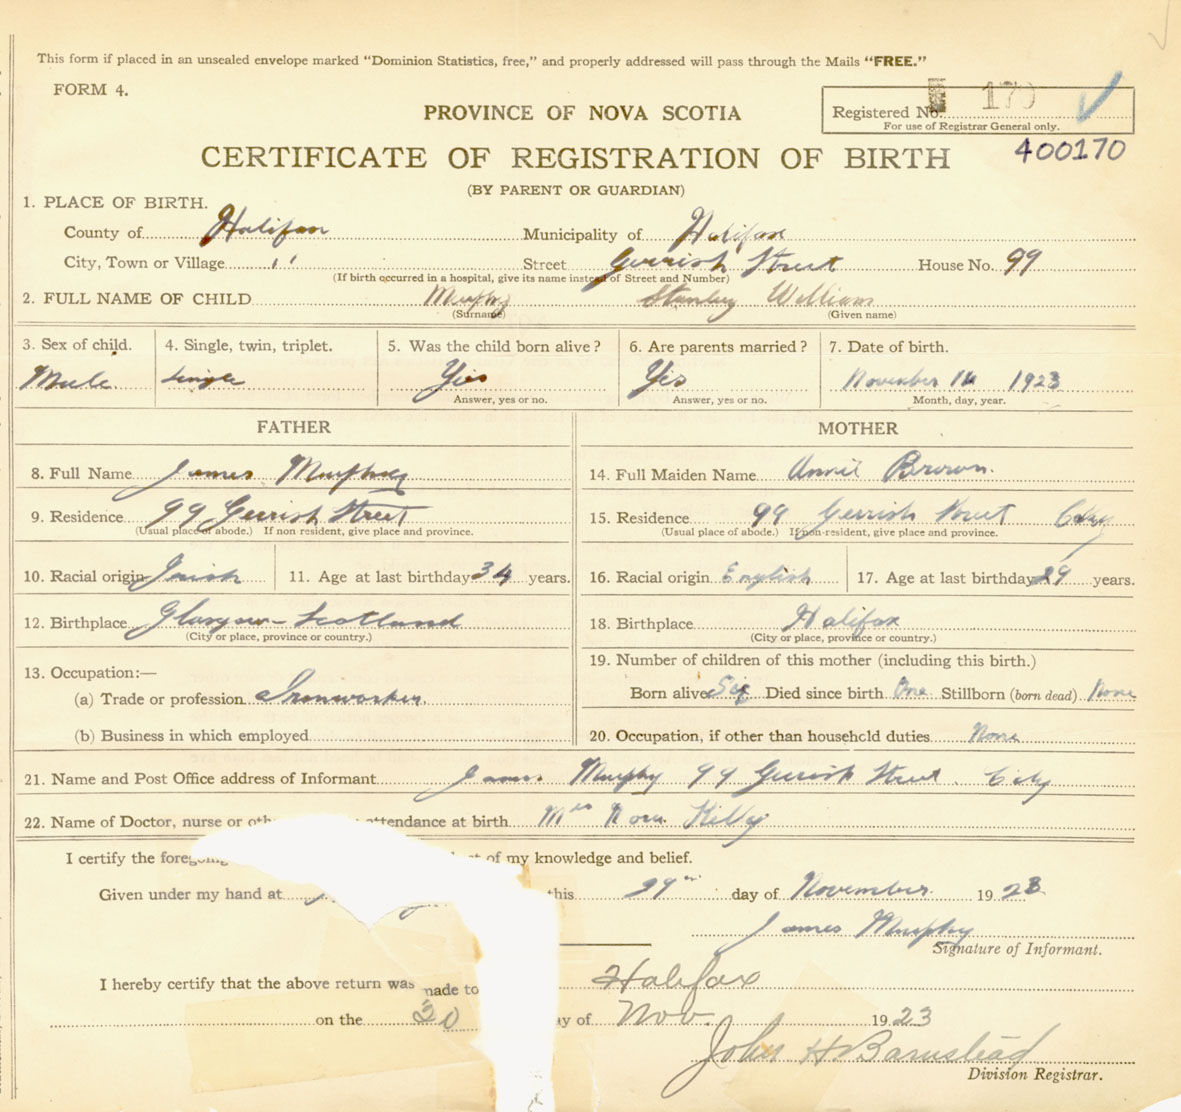 This form if placed in an unsealed envelope marked "Dominion Statistics, free," and properly addressed will pass through the Mails "FREE."
FORM 4.
PROVINCE OF NOVA SCOTIA
Registered No. 170
For use of Registrar General only.
CERTIFICATE OF REGISTRATION OF BIRTH 400170
(BY PARENT OR GUARDIAN)
1. PLACE OF BIRTH.
County of Halifax Municipality of Halifax
City, Town or Village " Street Gerrish Street House No. 99
(If birth occurred in a hospital, give its name instead of Street and Number)
2. FULL NAME OF CHILD Murphy Stanley William
(Surname) (Given name)
3. Sex of child. 4. Single, twin, triplet. 5. Was the child born alive? 6. Are parents married? 7. Date of birth.
Male. Single Yes Yes November 1923
Answer, yes or no. Answer, yes or no. Month, day, year.
FATHER MOTHER
8. Full Name James Murphy 14. Full Maiden Name Annie Brown.
9. Residence 99 Gerrish Street 15. Residence 99 Gerrish Street City
(Usual place of abode.) If non-resident, give place and province. (Usual place of abode.) If non-resident, give place and province.
10. Racial origin Irish 11. Age at last birthday 34 years. 16. Racial origin English 17. Age at last birthday 29 years.
12. Birthplace Glasgow - Scotland 18. Birthplace Halifax
(City or place, province or country.) (City or place, province or country.)
13. Occupation:— 19. Number of children of this mother (including this birth.)
(a) Trade or profession Ironworker. Born alive Six Died since birth One Stillborn (born dead) None
(b) Business in which employed 20. Occupation, if other than household duties None
21. Name and Post Office address of Informant James Murphy 99 Gerrish Street. City
22. Name of Doctor, nurse or oth attendance at birth Mrs Nora Kelly
I certify the foregoing of my knowledge and belief.
Given under my hand at this 29th day of November 1923
James Murphy
Signature of Informant.
I hereby certify that the above return was made to Halifax
on the 30 day of Nov. 1923
John H Barnstead
Division Registrar.